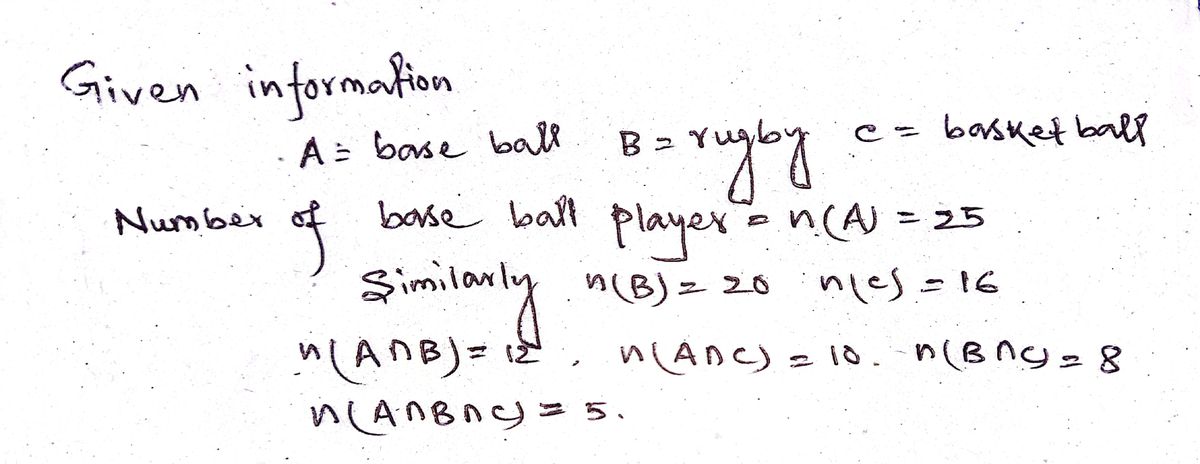 Given information
A = base ball B = rugby C = basket ball
Number of base ball player = n(A) = 25
Similarly n(B) = 20 n(C) = 16
n(A∩B) = 12, n(A∩C) = 10. n(B∩C) = 8
n(A∩B∩C) = 5.